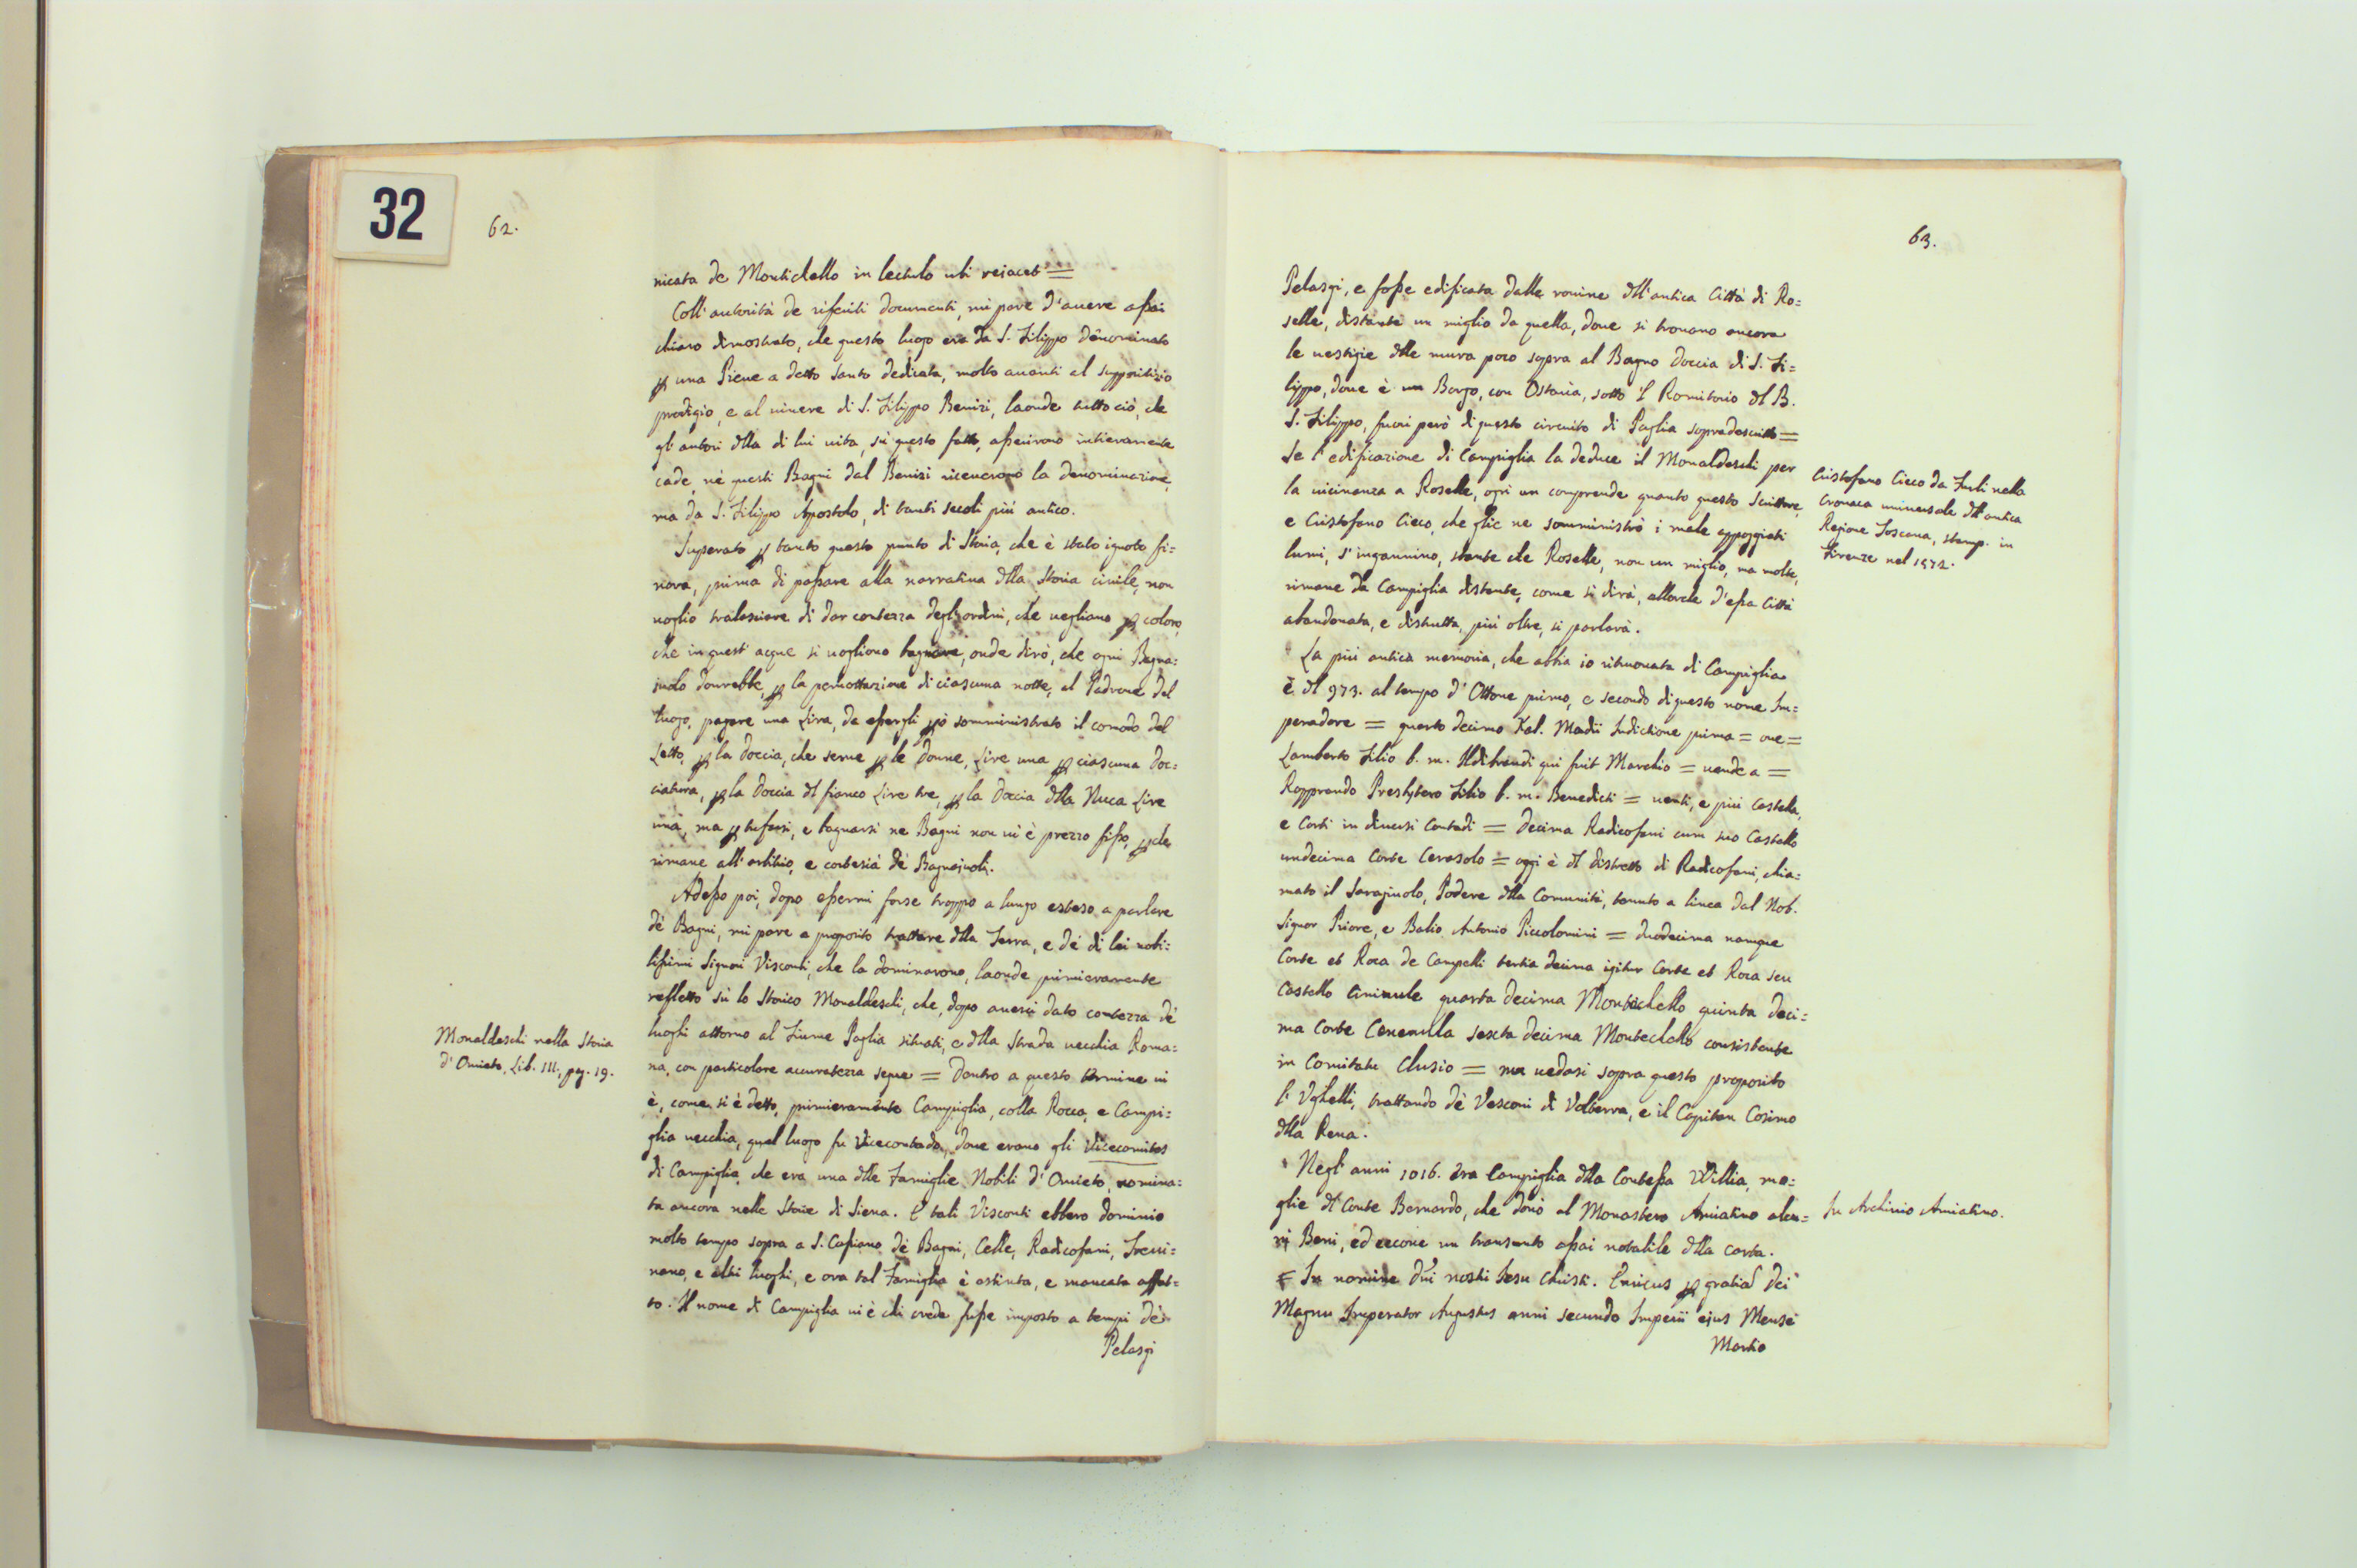 32
62.
nicata de Montichello in lectulo ubi reiacet =
Coll'autorità de riferiti documenti, mi pare d'auere assai
chiaro dimostrato, che questo luogo era da S. Filippo denominato
p una Pieue a detto Santo dedicata, molto auanti al suppositizio
prodigio, e al uiuere di S. Filippo Benizi, laonde tutto ciò, che
gl'autori dlla di lui uita, sù questo fatto, asserirono intieramente
cade, nè questi Bagni dal Benizi riceuerono la denominazione,
ma da S. Filippo Apostolo, di tanti secoli più antico.
Superato p tanto questo punto di Storia, che è stato ignoto fi=
nora, prima di passare alla narratiua dlla Storia ciuile, non
uoglio tralasciare di dar contezza degli ordini, che uegliano p coloro,
che in quest'acque si uogliono bagnare, onde dirò, che ogni Bagna=
iuolo dourebbe, p la pernottazione di ciascuna notte, al Padrone del
luogo, pagare una Lira, da essergli pò somministrato il comodo del
Letto, p la doccia, che serue p le donne, Lire una p ciascuna doc=
ciatura, p la doccia dl fianco Lire tre, p la Doccia dlla Nuca Lire
una, ma p tufarsi, e bagnarsi ne Bagni non ui è prezzo fisso, p che
rimane all'arbitrio, e cortesia de' Bagnajuoli.
Adesso poi, dopo essermi forse troppo a lungo esteso a parlare
dè Bagni, mi pare a proposito trattare dlla Terra, e dè di lei nobi=
lissimi Signori Visconti, che la dominarono, laonde primieramente
rifletto sù lo Storico Monaldeschi, che, dopo auerci dato contezza dè
luoghi attorno al Fiume Paglia situati, e dlla Strada uecchia Roma=
na, con particolare accuratezza segue = Dentro a questo termine ui
è, come si è detto, primieramente Campiglia, colla Rocca, e Campi=
glia uecchia, qual luogo fu Vicecontado, doue erano gli Vicecomites
di Campiglia, che era una dlle Famiglie Nobili d'Oruieto, nomina=
ta ancora nelle Storie di Siena. E tali Visconti ebbero dominio
molto tempo sopra a S. Cassiano dè Bagni, Celle, Radicofani, Treui=
nano, e altri luoghi, e ora tal Famiglia è estinta, e mancata affat=
to. Il nome di Campiglia ui è chi crede fusse imposto a tempi dè
Pelasgi
Monaldeschi nella Storia
d'Oruieto, Lib. III., pag. 19.
63.
Pelasgi, e fosse edificata dalle rouine dll'antica Città di Ro=
selle, distante un miglio da quella, doue si trouano ancora
le uestigie dlle mura poco sopra al Bagno Doccia di S. Fi=
lippo, doue è un Borgo, con Ostaria, sotto 'l Romitorio dl B.
S. Filippo, fuori però di questo circuito di Paglia sopradescritto =
Se l'edificazione di Campiglia la deduce il Monaldeschi per
la uicinanza a Roselle, ogni un comprende quanto questo Scrittore,
e Cristofano Cieco, che glie ne somministrò i male appoggiati
lumi, s'ingannino, stante che Roselle, non un miglio, ma molte,
rimane da Campiglia distante, come si dirà, allorche d'essa Città
abandonata, e distrutta, più oltre, si parlarà.
La più antica memoria, che abbia io ritrouata di Campiglia
è dl 973. al tempo d'Ottone primo, e secondo di questo nome Im=
peradore = quarto decimo Kal. Madii Indictione prima = oue =
Lamberto Filio b. m. Ildibrandi qui fuit Marchio = uende a =
Rapprando Presbytero Filio b. m. Benedicti = uenti, e più Castella,
e Corti in diuersi Contadi = decima Radicofani cum suo Castello
undecima Corte Cerasolo = oggi è dl distretto di Radicofani, chia=
mato il Saragiuolo, Podere dlla Comunità, tenuto a linea dal Nob.
Signor Priore, e Balio Antonio Piccolomini = duodecima namque
Corte et Roca de Campelli tertia decima igitur Corte et Roca seu
Castello Cinimule quarta decima Montichello quinta deci=
ma Corte Cenenulla sexta decima Montechello consistente
in Comitatu Clusio = ma uedasi sopra questo proposito
l'Vghelli, trattando dè Vescoui di Volterra, e il Capitan Cosimo
dlla Rena.
Negl'anni 1016. era Campiglia dlla Contessa Willia, mo=
glie dl Conte Bernardo, che donò al Monastero Amiatino alcu=
ni Beni, ed eccone un transunto assai notabile dlla carta.
= In nomine dni nostri Iesu Christi. Enricus p gratia Dei
Magnu Imperator Augustus anni secundo Imperii ejus Mense
Martio
Cristofano Cieco da Furlì nella
Cronaca uniuersale dll'antica
Regione Toscana, stamp. in
Firenze nel 1572.
In Archiuio Amiatino.